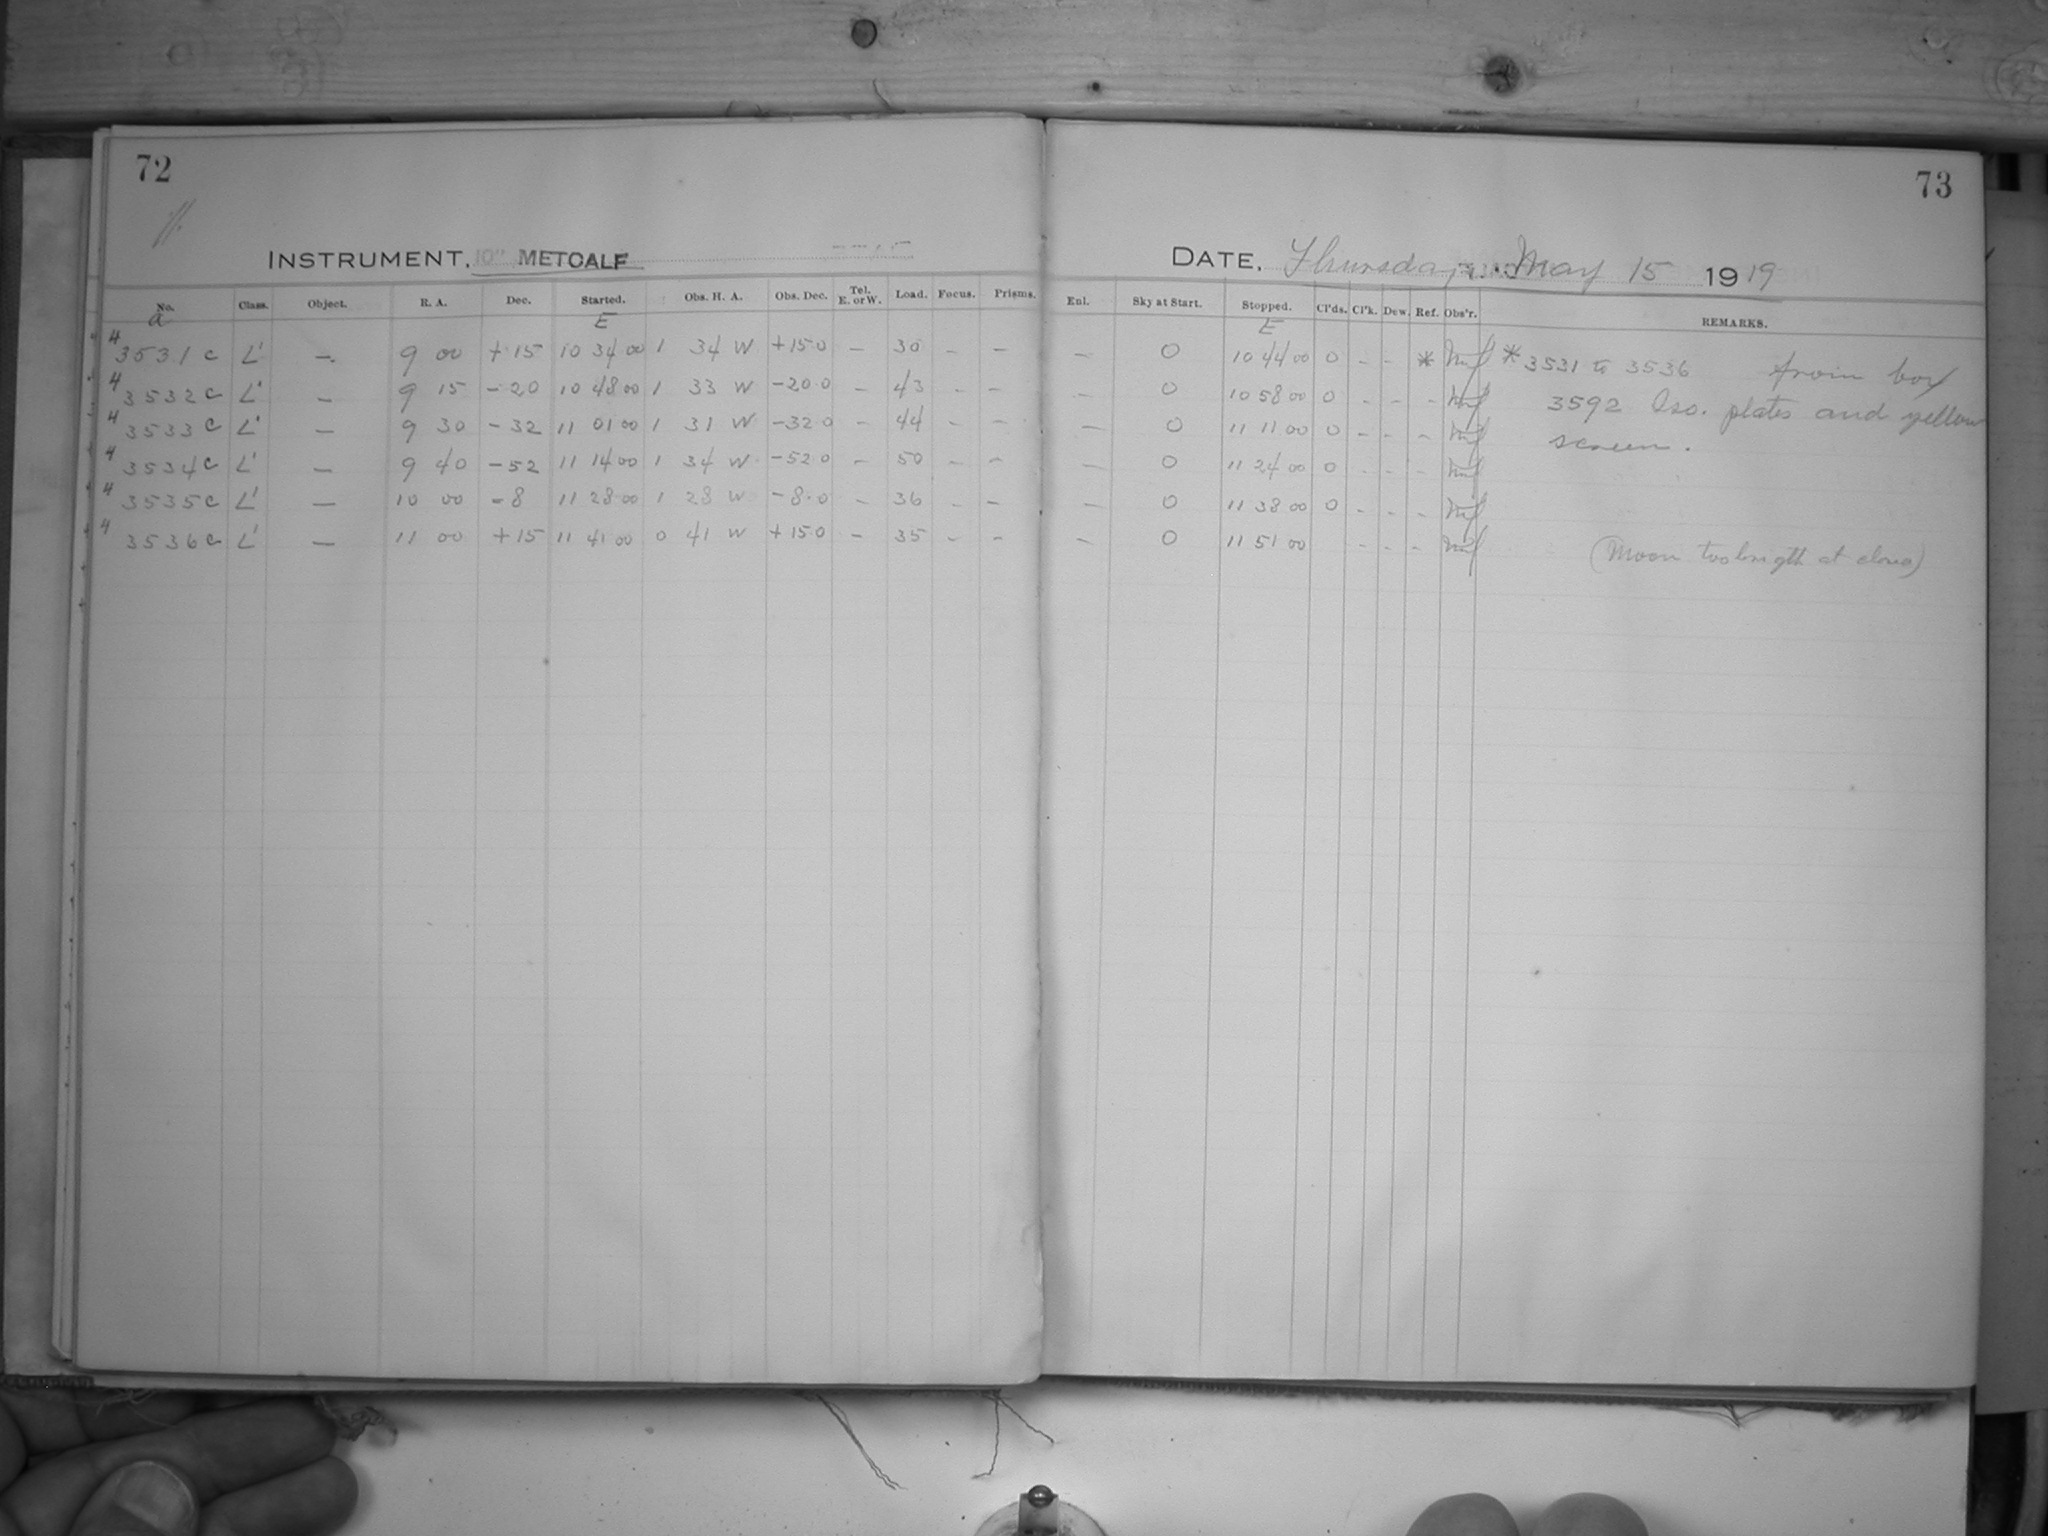 72
73
INSTRUMENT. 10" METCALF
DATE. Thursday, May 15 1919
No. Class. Object. R. A. Dec. Started. Obs. H. A. Obs. Dec. Tel. E. or W. Load. Focus. Prisms. Enl. Sky at Start. Stopped. Cl'ds. Cl'k. Dew. Ref. Obs'r. REMARKS.
a E E
4 3531 c L' — 9 00 +15 10 34 00 1 34 W +15.0 — 30 — — — 0 10 44 00 0 - - * * 3531 to 3536 from box
4 3532 c L' — 9 15 -20 10 48 00 1 33 W -20.0 — 43 — — — 0 10 58 00 0 - - - 3592 Iso. plates and yellow
4 3533 c L' — 9 30 -32 11 01 00 1 31 W -32.0 — 44 — — — 0 11 11 00 0 - - - screen.
4 3534 c L' — 9 40 -52 11 14 00 1 34 W -52.0 — 50 — — — 0 11 24 00 0 - - -
4 3535 c L' — 10 00 -8 11 28 00 1 28 W -8.0 — 36 — — — 0 11 38 00 0 - - -
4 3536 c L' — 11 00 +15 11 41 00 0 41 W +15.0 — 35 — — — 0 11 51 00 - - - (Moon too at